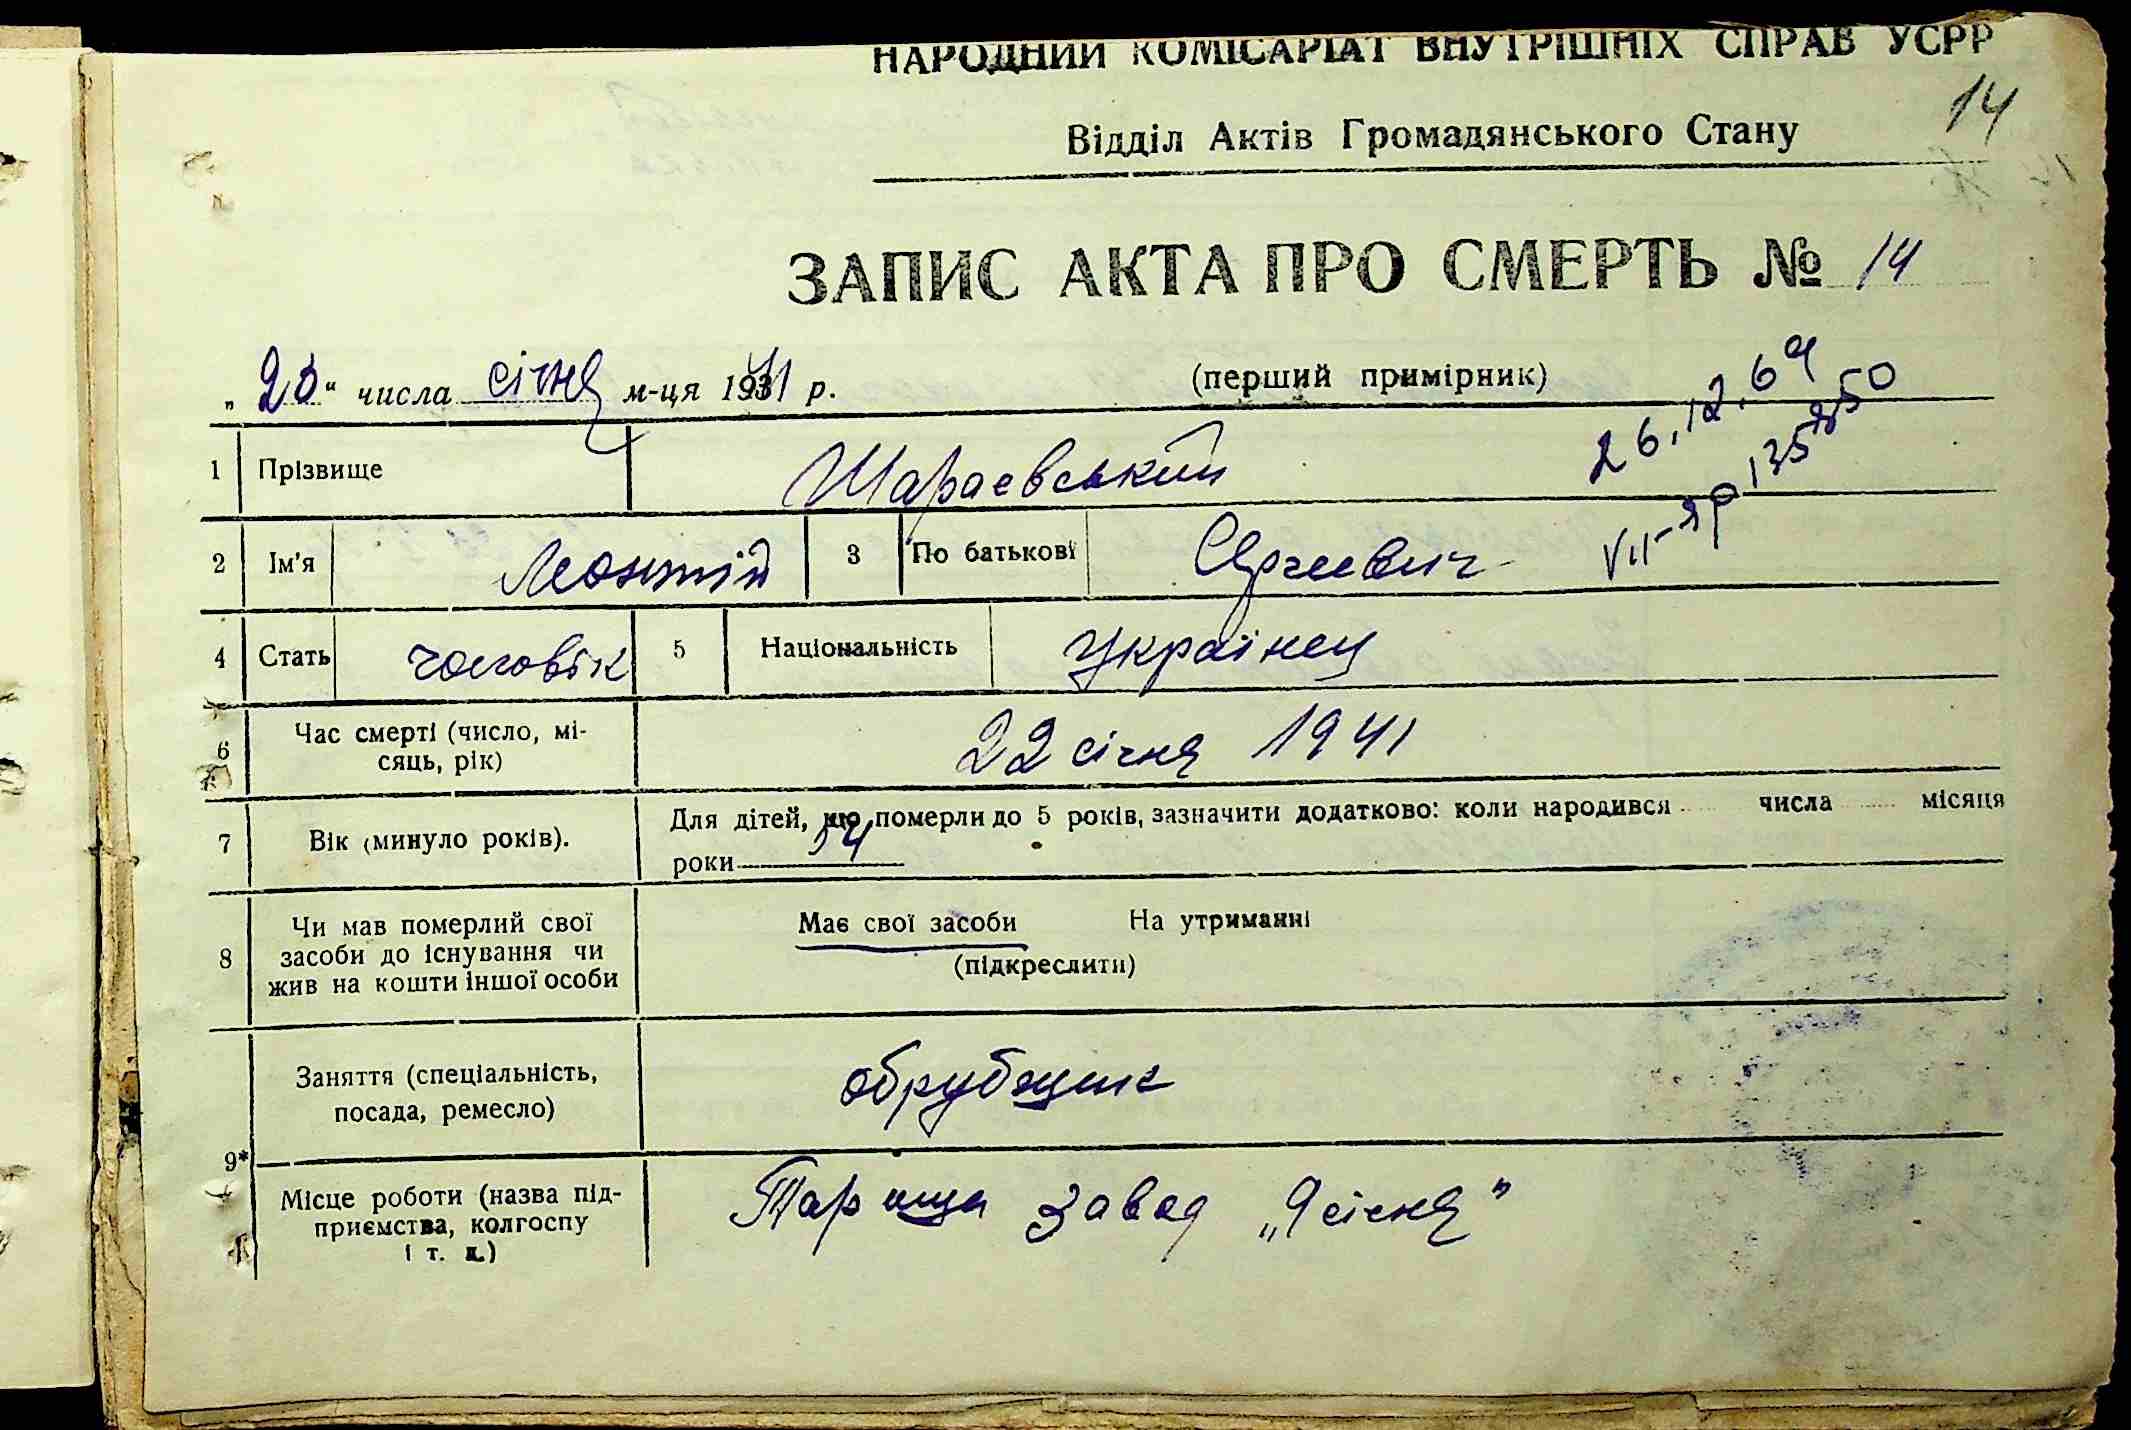 НАРОДНИЙ КОМІСАРІАТ ВНУТРІШНІХ СПРАВ УСРР
14
Відділ Актів Громадянського Стану
ЗАПИС АКТА ПРО СМЕРТЬ № 14
„23“ числа січня м-ця 1941 р. (перший примірник)
26.12.69
VII-ЯР 135850
1 Прізвище Шараєвський
2 Ім'я Леонтій 3 По батькові Сергиевич
4 Стать чоловік 5 Національність Українец
6 Час смерті (число, мі-
сяць, рік) 22 січня 1941
7 Вік (минуло років). Для дітей, що померли до 5 років, зазначити додатково: коли народився числа місяця
роки 54
8 Чи мав померлий свої
засоби до існування чи
жив на кошти іншої особи
Має свої засоби На утриманні
(підкреслити)
Заняття (спеціальність,
посада, ремесло) обрубщик
9*
Місце роботи (назва під-
приємства, колгоспу
і т. д.)
завод „9 січня”